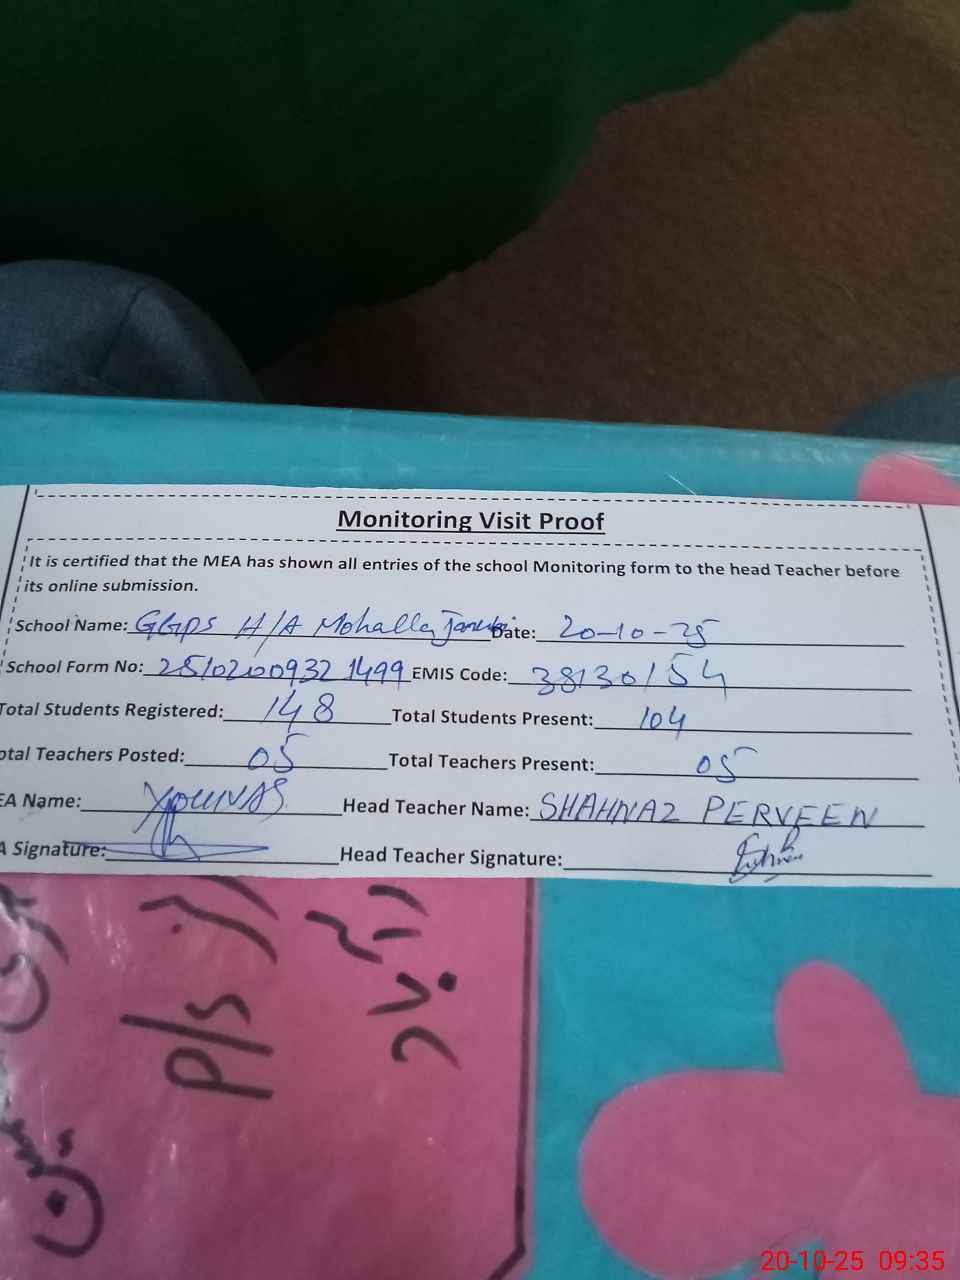 Monitoring Visit Proof
It is certified that the MEA has shown all entries of the school Monitoring form to the head Teacher before
its online submission.
School Name: GGPS H/A Mohalla Date: 20-10-25
School Form No: 25102009321499 EMIS Code: 38130154
Total Students Registered: 148 Total Students Present: 104
otal Teachers Posted: 05 Total Teachers Present: 05
EA Name: YOUNAS Head Teacher Name: SHAHNAZ PERVEEN
A Signature: Head Teacher Signature:
P/S
20-10-25 09:35